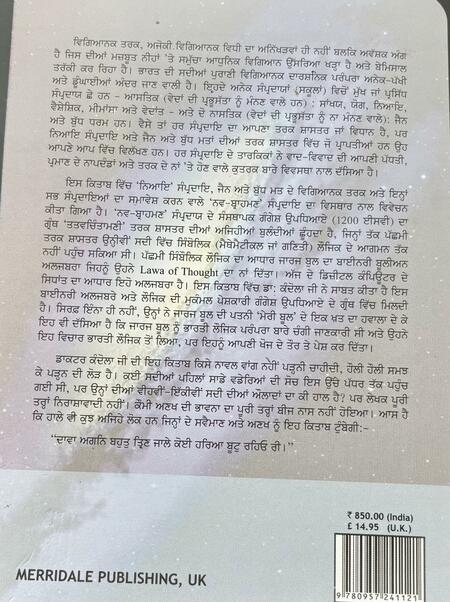 ਵਿਗਿਆਨਕ ਤਰਕ, ਅਜੋਕੀ ਵਿਗਿਆਨਕ ਵਿਧੀ ਦਾ ਅਨਿੱਖੜਵਾਂ ਹੀ ਨਹੀਂ ਬਲਕਿ ਅਵੱਸ਼ਕ ਅੰਗ
ਹੈ ਜਿਸ ਦੀਆਂ ਮਜ਼ਬੂਤ ਨੀਹਾਂ 'ਤੇ ਸਮੁੱਚਾ ਆਧੁਨਿਕ ਵਿਗਿਆਨ ਉੱਸਰਿਆ ਖੜ੍ਹਾ ਹੈ ਅਤੇ ਬੇਮਿਸਾਲ
ਤਰੱਕੀ ਕਰ ਰਿਹਾ ਹੈ। ਭਾਰਤ ਦੀ ਸਦੀਆਂ ਪੁਰਾਣੀ ਵਿਗਿਆਨਕ ਦਾਰਸ਼ਨਿਕ ਪਰੰਪਰਾ ਅਨੇਕ-ਪੱਖੀ
ਅਤੇ ਡੂੰਘਾਈਆਂ ਅੰਦਰ ਜਾਣ ਵਾਲੀ ਹੈ। ਇਹਦੇ ਅਨੇਕ ਸੰਪ੍ਰਦਾਯਾਂ (ਸਕੂਲਾਂ) ਵਿਚੋਂ ਮੁੱਖ ਜਾਂ ਪ੍ਰਸਿੱਧ
ਸੰਪ੍ਰਦਾਯ ਛੇ ਹਨ - ਆਸਤਿਕ (ਵੇਦਾਂ ਦੀ ਪ੍ਰਭੂਸੱਤਾ ਨੂੰ ਮੰਨਣ ਵਾਲੇ ਹਨ) : ਸਾਂਖਯ, ਯੋਗ, ਨਿਆਇ,
ਵੈਸ਼ੇਸ਼ਿਕ, ਮੀਮਾਂਸਾ ਅਤੇ ਵੇਦਾਂਤ - ਅਤੇ ਦੋ ਨਾਸਤਿਕ (ਵੇਦਾਂ ਦੀ ਪ੍ਰਭੂਸੱਤਾ ਨੂੰ ਨਾ ਮੰਨਣ ਵਾਲੇ): ਜੈਨ
ਅਤੇ ਬੁੱਧ ਧਰਮ ਹਨ। ਵੈਸੇ ਤਾਂ ਹਰ ਸੰਪ੍ਰਦਾਇ ਦਾ ਆਪਣਾ ਤਰਕ ਸ਼ਾਸਤਰ ਜਾਂ ਵਿਧਾਨ ਹੈ, ਪਰ
ਨਿਆਇ ਸੰਪ੍ਰਦਾਇ ਅਤੇ ਜੈਨ ਅਤੇ ਬੁੱਧ ਮਤਾਂ ਦੀਆਂ ਤਰਕ ਸ਼ਾਸਤਰ ਵਿੱਚ ਜੋ ਪ੍ਰਾਪਤੀਆਂ ਹਨ ਉਹ
ਆਪਣੇ ਆਪ ਵਿੱਚ ਵਿਲੱਖਣ ਹਨ। ਹਰ ਸੰਪ੍ਰਦਾਇ ਦੇ ਤਾਰਕਿਕਾਂ ਨੇ ਵਾਦ-ਵਿਵਾਦ ਦੀ ਆਪਣੀ ਪੱਧਤੀ,
ਪ੍ਰਮਾਣ ਦੇ ਨਾਪਦੰਡਾਂ ਅਤੇ ਤਰਕ ਦੇ ਨਾਂ 'ਤੇ ਹੋਣ ਵਾਲੇ ਕੁਤਰਕ ਬਾਰੇ ਵਿਵਸਥਾ ਨਾਲ ਦੱਸਿਆ ਹੈ।
ਇਸ ਕਿਤਾਬ ਵਿੱਚ 'ਨਿਆਇ' ਸੰਪ੍ਰਦਾਇ, ਜੈਨ ਅਤੇ ਬੁੱਧ ਮਤ ਦੇ ਵਿਗਿਆਨਕ ਤਰਕ ਅਤੇ ਇਨ੍ਹਾਂ
ਸਭ ਸੰਪ੍ਰਦਾਇਆਂ ਦਾ ਸਮਾਵੇਸ਼ ਕਰਨ ਵਾਲੇ 'ਨਵ-ਬ੍ਰਾਹਮਣ' ਸੰਪ੍ਰਦਾਇ ਦਾ ਵਿਸਥਾਰ ਨਾਲ ਵਿਵੇਚਨ
ਕੀਤਾ ਗਿਆ ਹੈ। 'ਨਵ-ਬ੍ਰਾਹਮਣ' ਸੰਪ੍ਰਦਾਯ ਦੇ ਸੰਸਥਾਪਕ ਗੰਗੇਸ਼ ਉਪਧਿਆਏ (1200 ਈਸਵੀ) ਦਾ
ਗ੍ਰੰਥ 'ਤਤਵਚਿੰਤਾਮਣੀ' ਤਰਕ ਸ਼ਾਸਤਰ ਦੀਆਂ ਅਜਿਹੀਆਂ ਬੁਲੰਦੀਆਂ ਛੂੰਹਦਾ ਹੈ, ਜਿਨ੍ਹਾਂ ਤੱਕ ਪੱਛਮੀ
ਤਰਕ ਸ਼ਾਸਤਰ ਉਨ੍ਹੀਵੀਂ ਸਦੀ ਵਿੱਚ ਸਿੰਬੋਲਿਕ (ਮੈਥੇਮੈਟੀਕਲ ਜਾਂ ਗਣਿਤੀ) ਲੌਜਿਕ ਦੇ ਆਗਮਨ ਤੱਕ
ਨਹੀਂ ਪਹੁੰਚ ਸਕਿਆ ਸੀ। ਪੱਛਮੀ ਸਿੰਬੋਲਿਕ ਲੌਜਿਕ ਦਾ ਆਧਾਰ ਜਾਰਜ਼ ਬੂਲ ਦਾ ਬਾਈਨਰੀ ਬੂਲੀਅਨ
ਅਲਜਬਰਾ ਜਿਹਨੂੰ ਉਹਨੇ Lawa of Thought ਦਾ ਨਾਂ ਦਿੱਤਾ। ਅੱਜ ਦੇ ਡਿਜ਼ੀਟਲ ਕੰਪਿਊਟਰ ਦੇ
ਸਿਧਾਂਤ ਦਾ ਆਧਾਰ ਇਹੋ ਅਲਜਬਰਾ ਹੈ। ਇਸ ਕਿਤਾਬ ਵਿੱਚ ਡਾ: ਕੰਦੋਲਾ ਜੀ ਨੇ ਸਾਬਤ ਕੀਤਾ ਹੈ ਇਸ
ਬਾਈਨਰੀ ਅਲਜਬਰੇ ਅਤੇ ਲੌਜਿਕ ਦੀ ਮੁਕੰਮਲ ਪੇਸ਼ਕਾਰੀ ਗੰਗੇਸ਼ ਉਪਧਿਆਏ ਦੇ ਗ੍ਰੰਥ ਵਿੱਚ ਮਿਲਦੀ
ਹੈ। ਸਿਰਫ਼ ਇੰਨਾ ਹੀ ਨਹੀਂ, ਉਨ੍ਹਾਂ ਨੇ ਜਾਰਜ ਬੂਲ ਦੀ ਪਤਨੀ 'ਮੇਰੀ ਬੂਲ' ਦੇ ਇਕ ਖ਼ਤ ਦਾ ਹਵਾਲਾ ਦੇ ਕੇ
ਇਹ ਵੀ ਦੱਸਿਆ ਹੈ ਕਿ ਜਾਰਜ ਬੂਲ ਨੂੰ ਭਾਰਤੀ ਲੌਜਿਕ ਪਰੰਪਰਾ ਬਾਰੇ ਚੰਗੀ ਜਾਣਕਾਰੀ ਸੀ ਅਤੇ ਉਹਨੇ
ਇਹ ਵਿਚਾਰ ਭਾਰਤੀ ਲੌਜਿਕ ਤੋਂ ਲਿਆ, ਪਰ ਇਹਨੂੰ ਆਪਣੀ ਖੋਜ ਦੇ ਤੌਰ ਤੇ ਪੇਸ਼ ਕਰ ਦਿੱਤਾ।
ਡਾਕਟਰ ਕੰਦੋਲਾ ਜੀ ਦੀ ਇਹ ਕਿਤਾਬ ਕਿਸੇ ਨਾਵਲ ਵਾਂਗ ਨਹੀਂ ਪੜ੍ਹਨੀ ਚਾਹੀਦੀ, ਹੌਲੀ ਹੌਲੀ ਸਮਝ
ਕੇ ਪੜ੍ਹਨ ਦੀ ਲੋੜ ਹੈ। ਕਈ ਸਦੀਆਂ ਪਹਿਲਾਂ ਸਾਡੇ ਵਡੇਰਿਆਂ ਦੀ ਸੋਚ ਇਸ ਉੱਚੇ ਪੱਧਰ ਤੱਕ ਪਹੁੰਚ
ਗਈ ਸੀ, ਪਰ ਉਨ੍ਹਾਂ ਦੀਆਂ ਵੀਹਵੀਂ-ਇੱਕੀਵੀਂ ਸਦੀ ਦੀਆਂ ਔਲਾਦਾਂ ਦਾ ਕੀ ਹਾਲ ਹੈ? ਪਰ ਲੇਖਕ ਪੂਰੀ
ਤਰ੍ਹਾਂ ਨਿਰਾਸ਼ਾਵਾਦੀ ਨਹੀਂ। ਕੌਮੀ ਅਣਖ ਦੀ ਭਾਵਨਾ ਦਾ ਪੂਰੀ ਤਰ੍ਹਾਂ ਬੀਜ ਨਾਸ ਨਹੀਂ ਹੋਇਆ। ਆਸ ਹੈ
ਕਿ ਹਾਲੇ ਵੀ ਕੁਝ ਅਜਿਹੇ ਲੋਕ ਹਨ ਜਿਨ੍ਹਾਂ ਦੇ ਸਵੈਮਾਣ ਅਤੇ ਅਣਖ ਨੂੰ ਇਹ ਕਿਤਾਬ ਟੁੰਬੇਗੀ:-
"ਦਾਵਾ ਅਗਨਿ ਬਹੁਤੁ ਤ੍ਰਿਣ ਜਾਲੇ ਕੋਈ ਹਰਿਆ ਬੂਟੁ ਰਹਿਓ ਰੀ।"
₹ 850.00 (India)
£ 14.95 (U.K.)
MERRIDALE PUBLISHING, UK
9 780957 241121